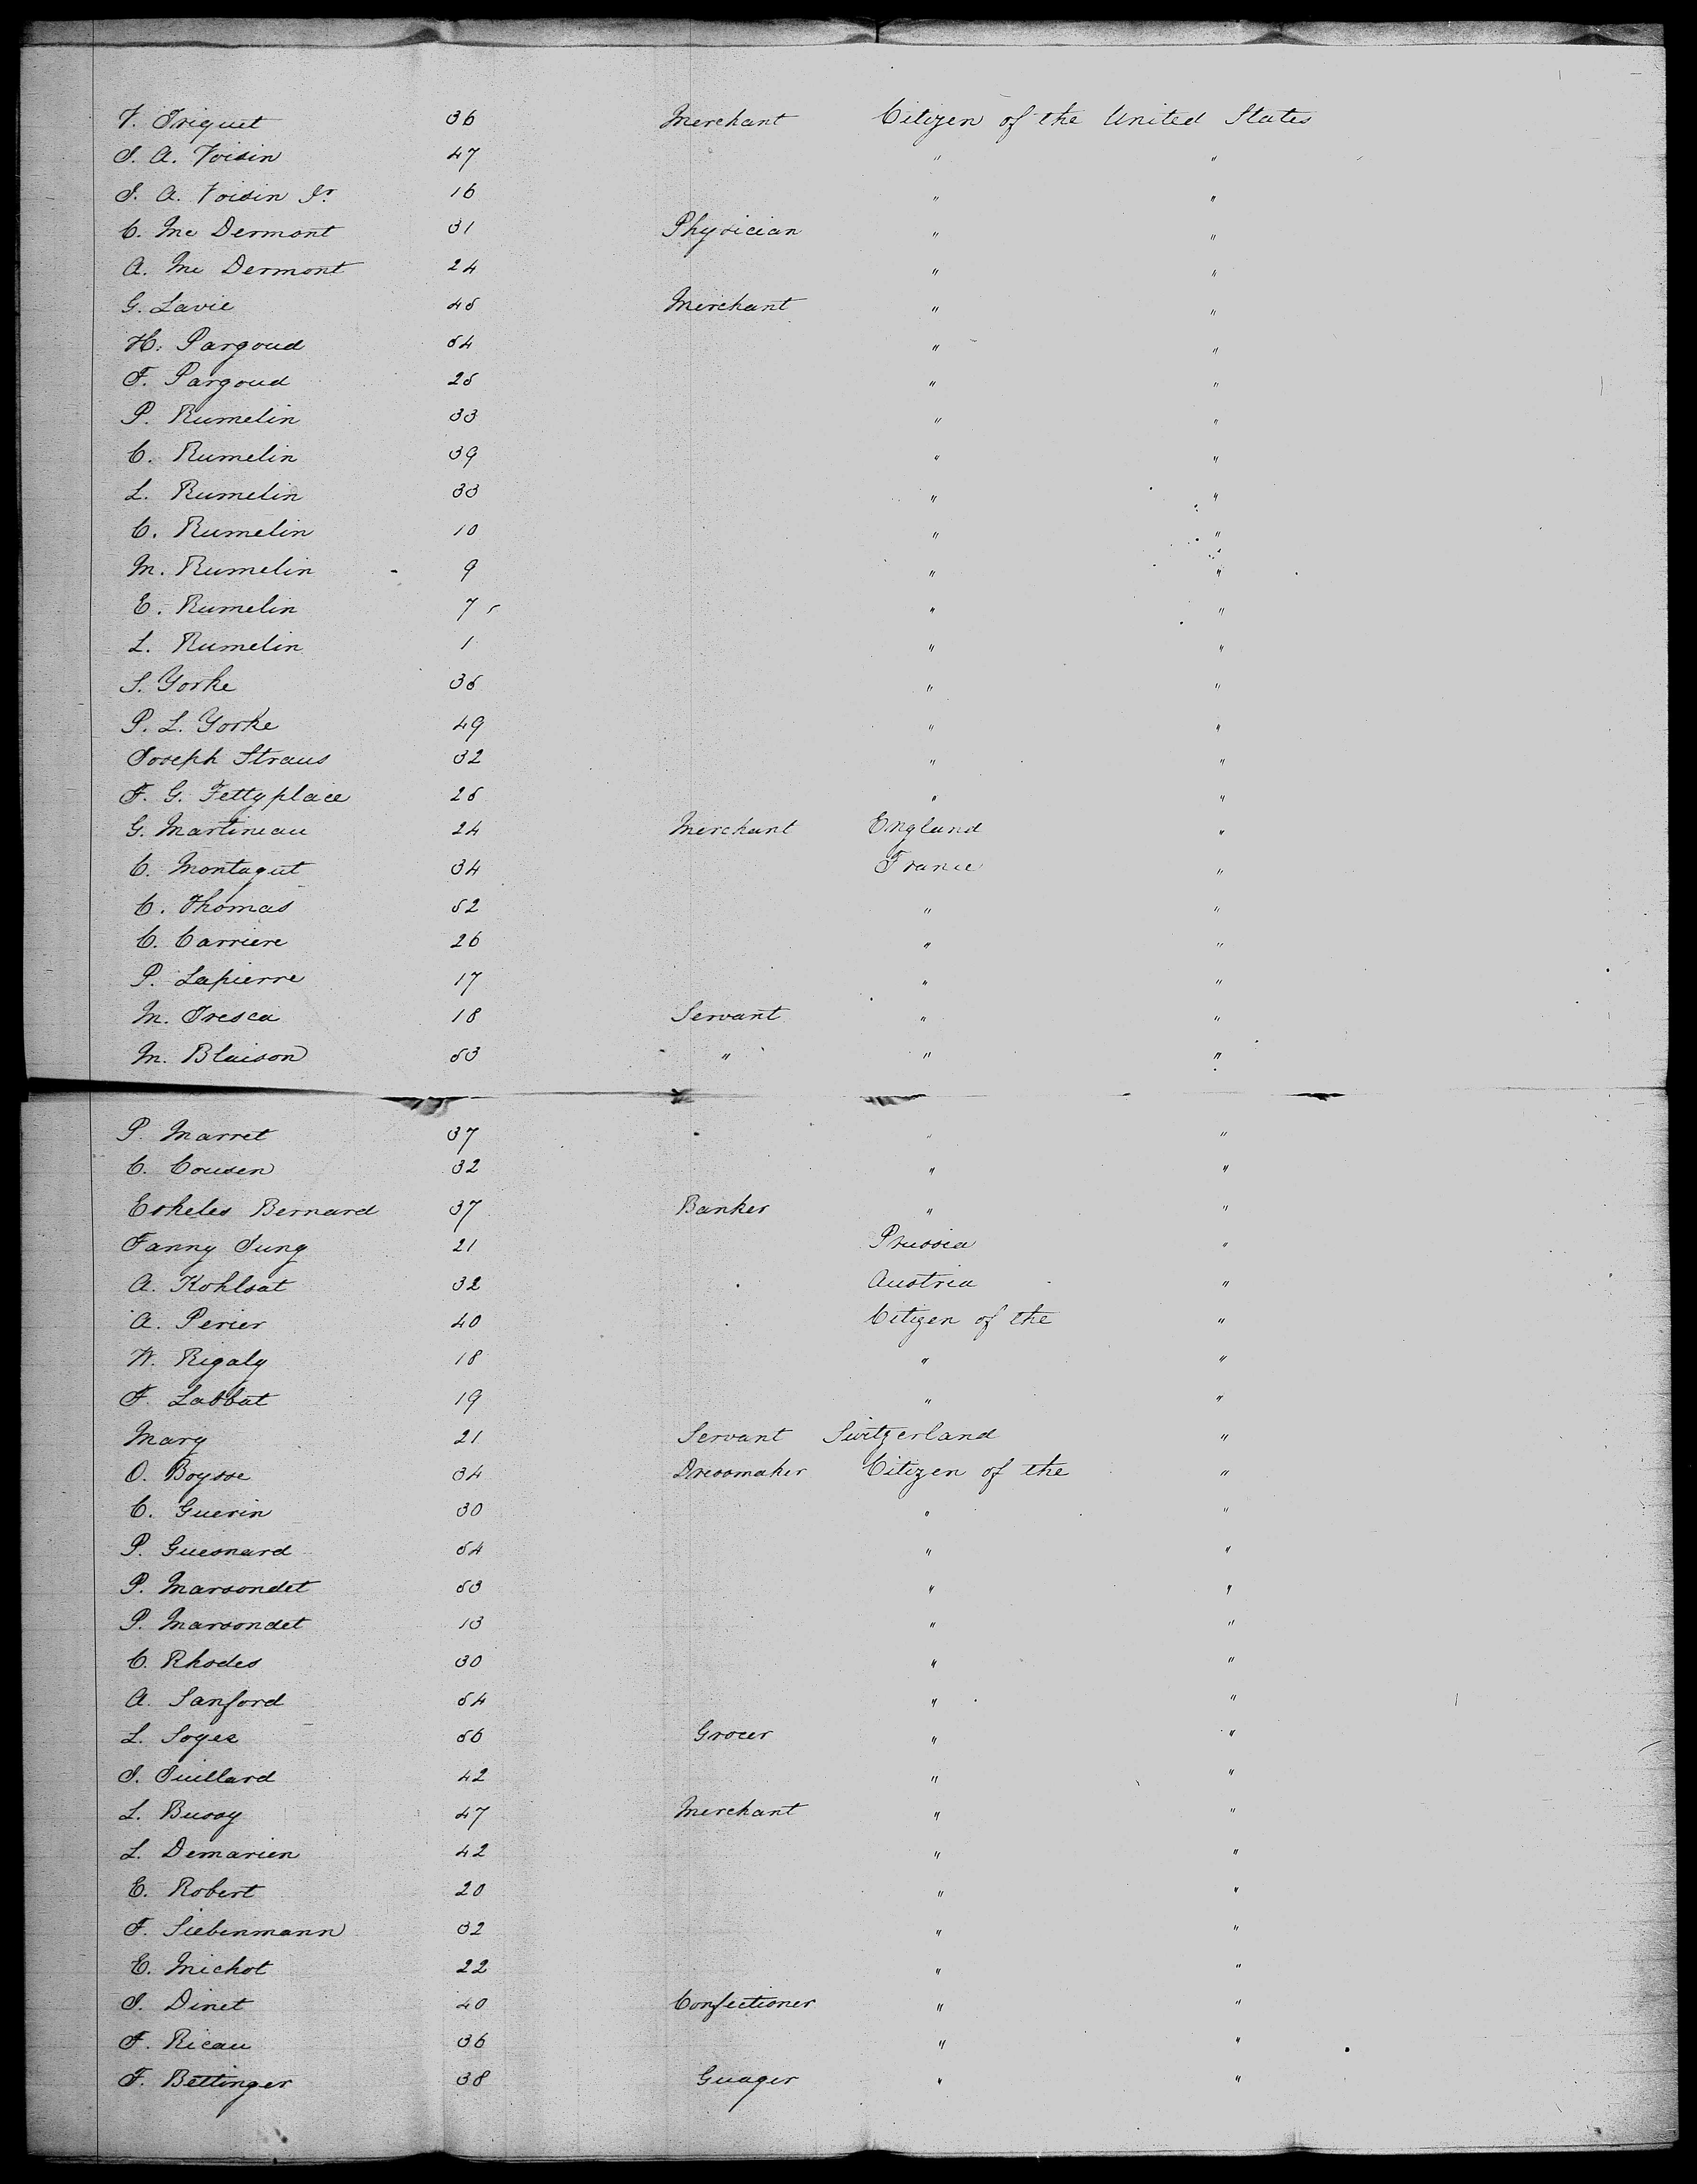 V. Triquet 36 Merchant Citizen of the United States
J. A. Voisin 47 " "
J. A. Voisin Jr. 16 " "
C. Mc Dermont 31 Physician " "
A. Mc Dermont 24 " "
G. Lavie 45 Merchant " "
H. Pargoud 54 " "
F. Pargoud 25 " "
P. Rumelin 33 " "
C. Rumelin 39 " "
L. Rumelin 33 " "
C. Rumelin 10 " "
M. Rumelin 9 " "
E. Rumelin 7 " "
L. Rumelin 1 " "
S. Yorke 35 " "
P. L. Yorke 49 " "
Joseph Straus 32 " "
F. G. Fettyplace 25 " "
G. Martineau 24 Merchant England "
C. Montagut 34 France "
C. Thomas 52 " "
C. Carriere 26 " "
P. Lapierre 17 " "
M. Tresca 18 Servant " "
M. Blaison 53 " " "
P. Marret 37 " "
C. Cousen 32 " "
Eskeles Bernard 37 Banker " "
Fanny Jung 21 Prussia "
A. Kohlsat 32 Austria "
A. Perier 40 Citizen of the "
W. Rigaly 18 " "
F. Labbat 19 " "
Mary 21 Servant Switzerland "
O. Boysse 34 Dressmaker Citizen of the "
C. Guerin 30 " "
P. Guesnard 54 " "
P. Marsondet 53 " "
P. Marsondet 13 " "
C. Rhodes 30 " "
A. Sanford 54 " "
L. Soyez 56 Grocer " "
J. Juillard 42 " "
L. Bussy 47 Merchant " "
L. Demarien 42 " "
E. Robert 20 " "
F. Siebenmann 32 " "
E. Michot 22 " "
J. Dinet 40 Confectioner " "
F. Ricau 36 " "
F. Bettinger 38 Guager " "